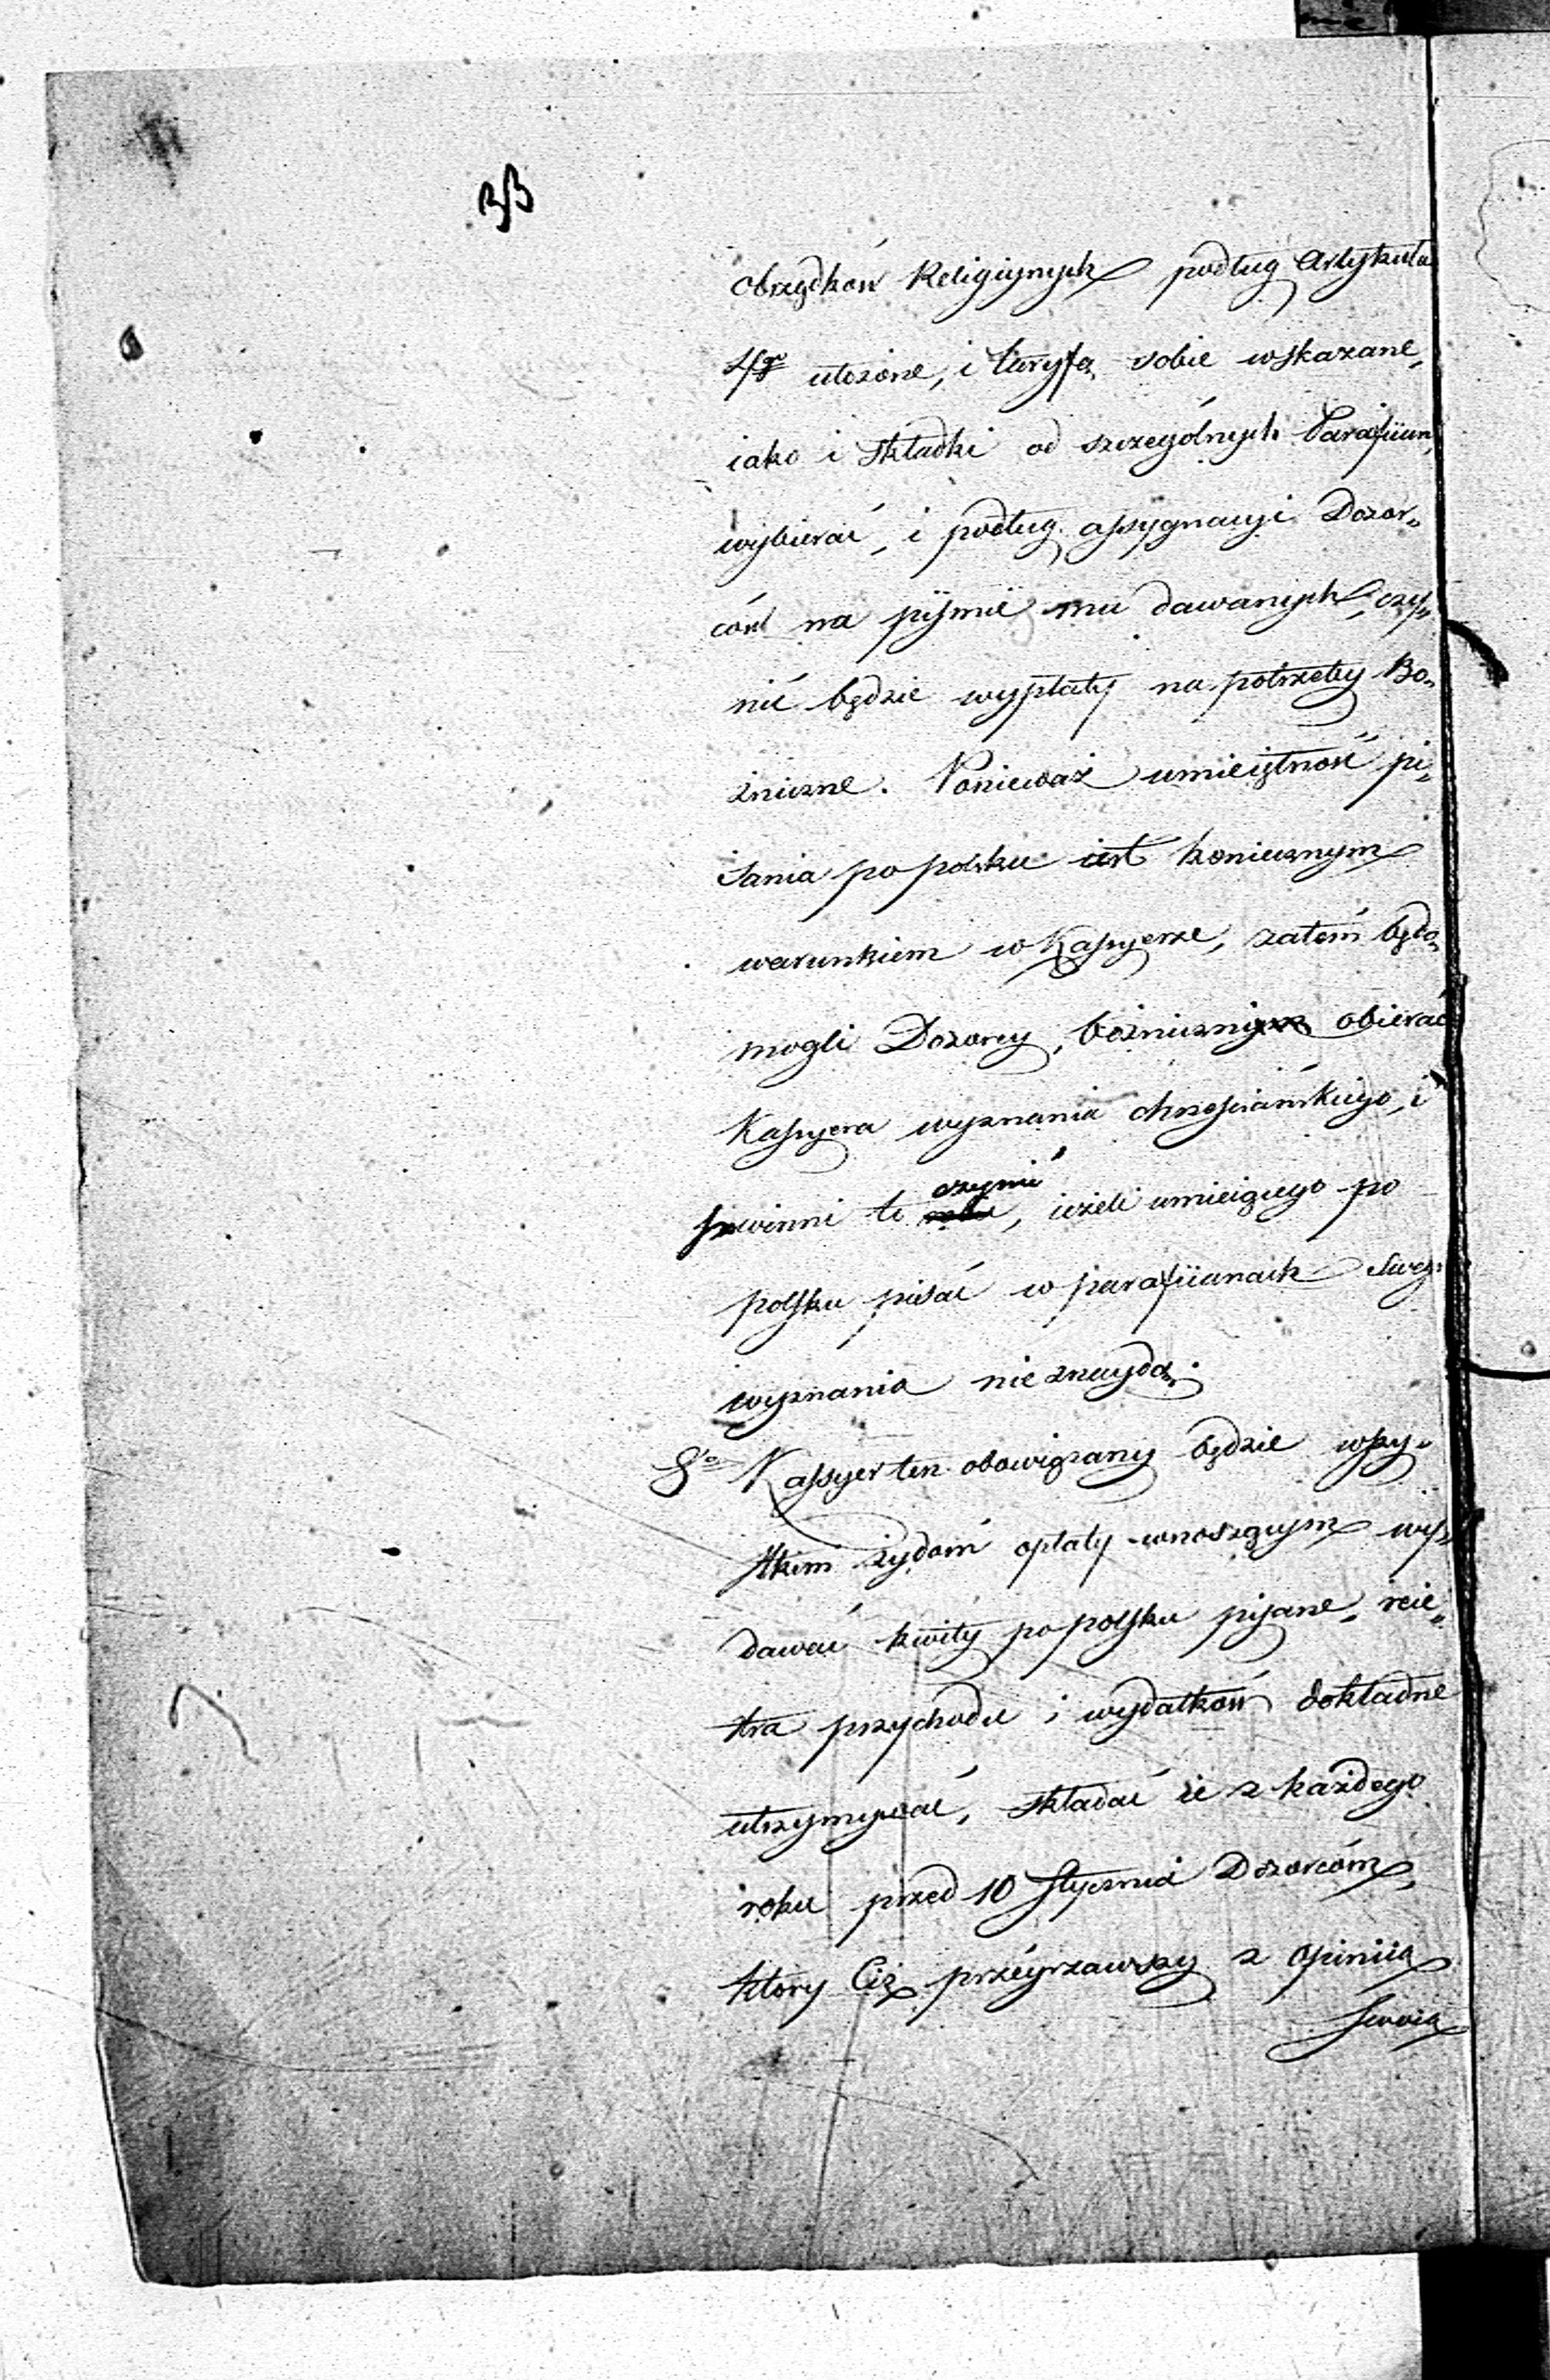 obrządków Religiynych podług Artykułu
4go ułożone, i taryfą sobie wskazane,
iako i składki od szczególnych Parafiian,
wybierać, i podług assygnacyi Dozor„
ców na piśmie mu dawanych, czy„
nić będzie wypłaty na potrzeby Bo„
żniczne. Ponieważ umieiętność pi„
sania po polsku iest koniecznym
warunkiem w Kassyerze, zatem będą
mogli Dozorcy bożniczni obierać
Kassyera wyznania chrześciańskiego, i
powinni to czynić, ieżeli umieiącego po
polsku pisać w parafiianach swego
wyznania nie znaydą.
8o Kassyer ten obowiązany będzie wszy„
stkim żydom opłaty wnoszącym wy„
dawać kwity po polsku pisane, reie„
stra przychodu i wydatków dokładne
utrzymywać, składać ie z każdego
roku przed 10 Stycznia Dozorcóm,
ktory Ciż przeyrzawszy z opiniią
swoią